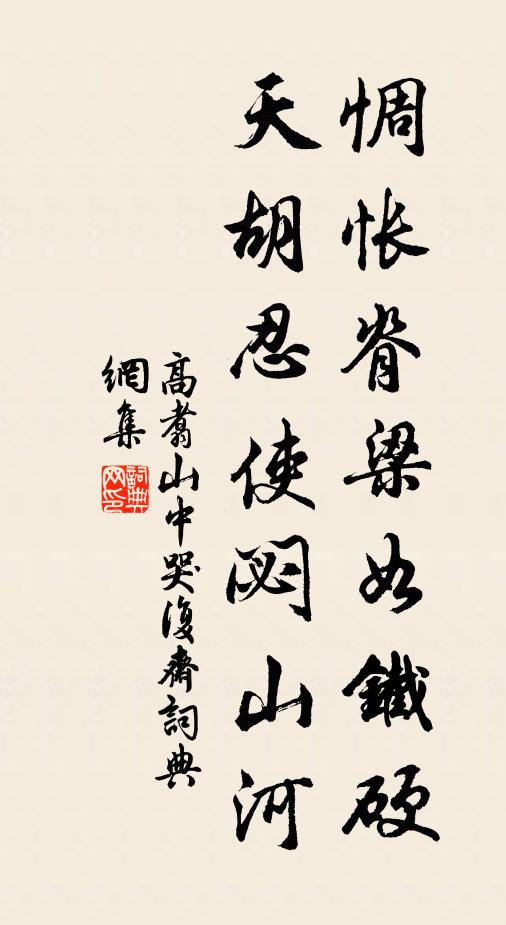 惆悵脊梁如鐵硬
天胡忍使閟山河
高翥山中哭復齋詞典
網集
詞典網印